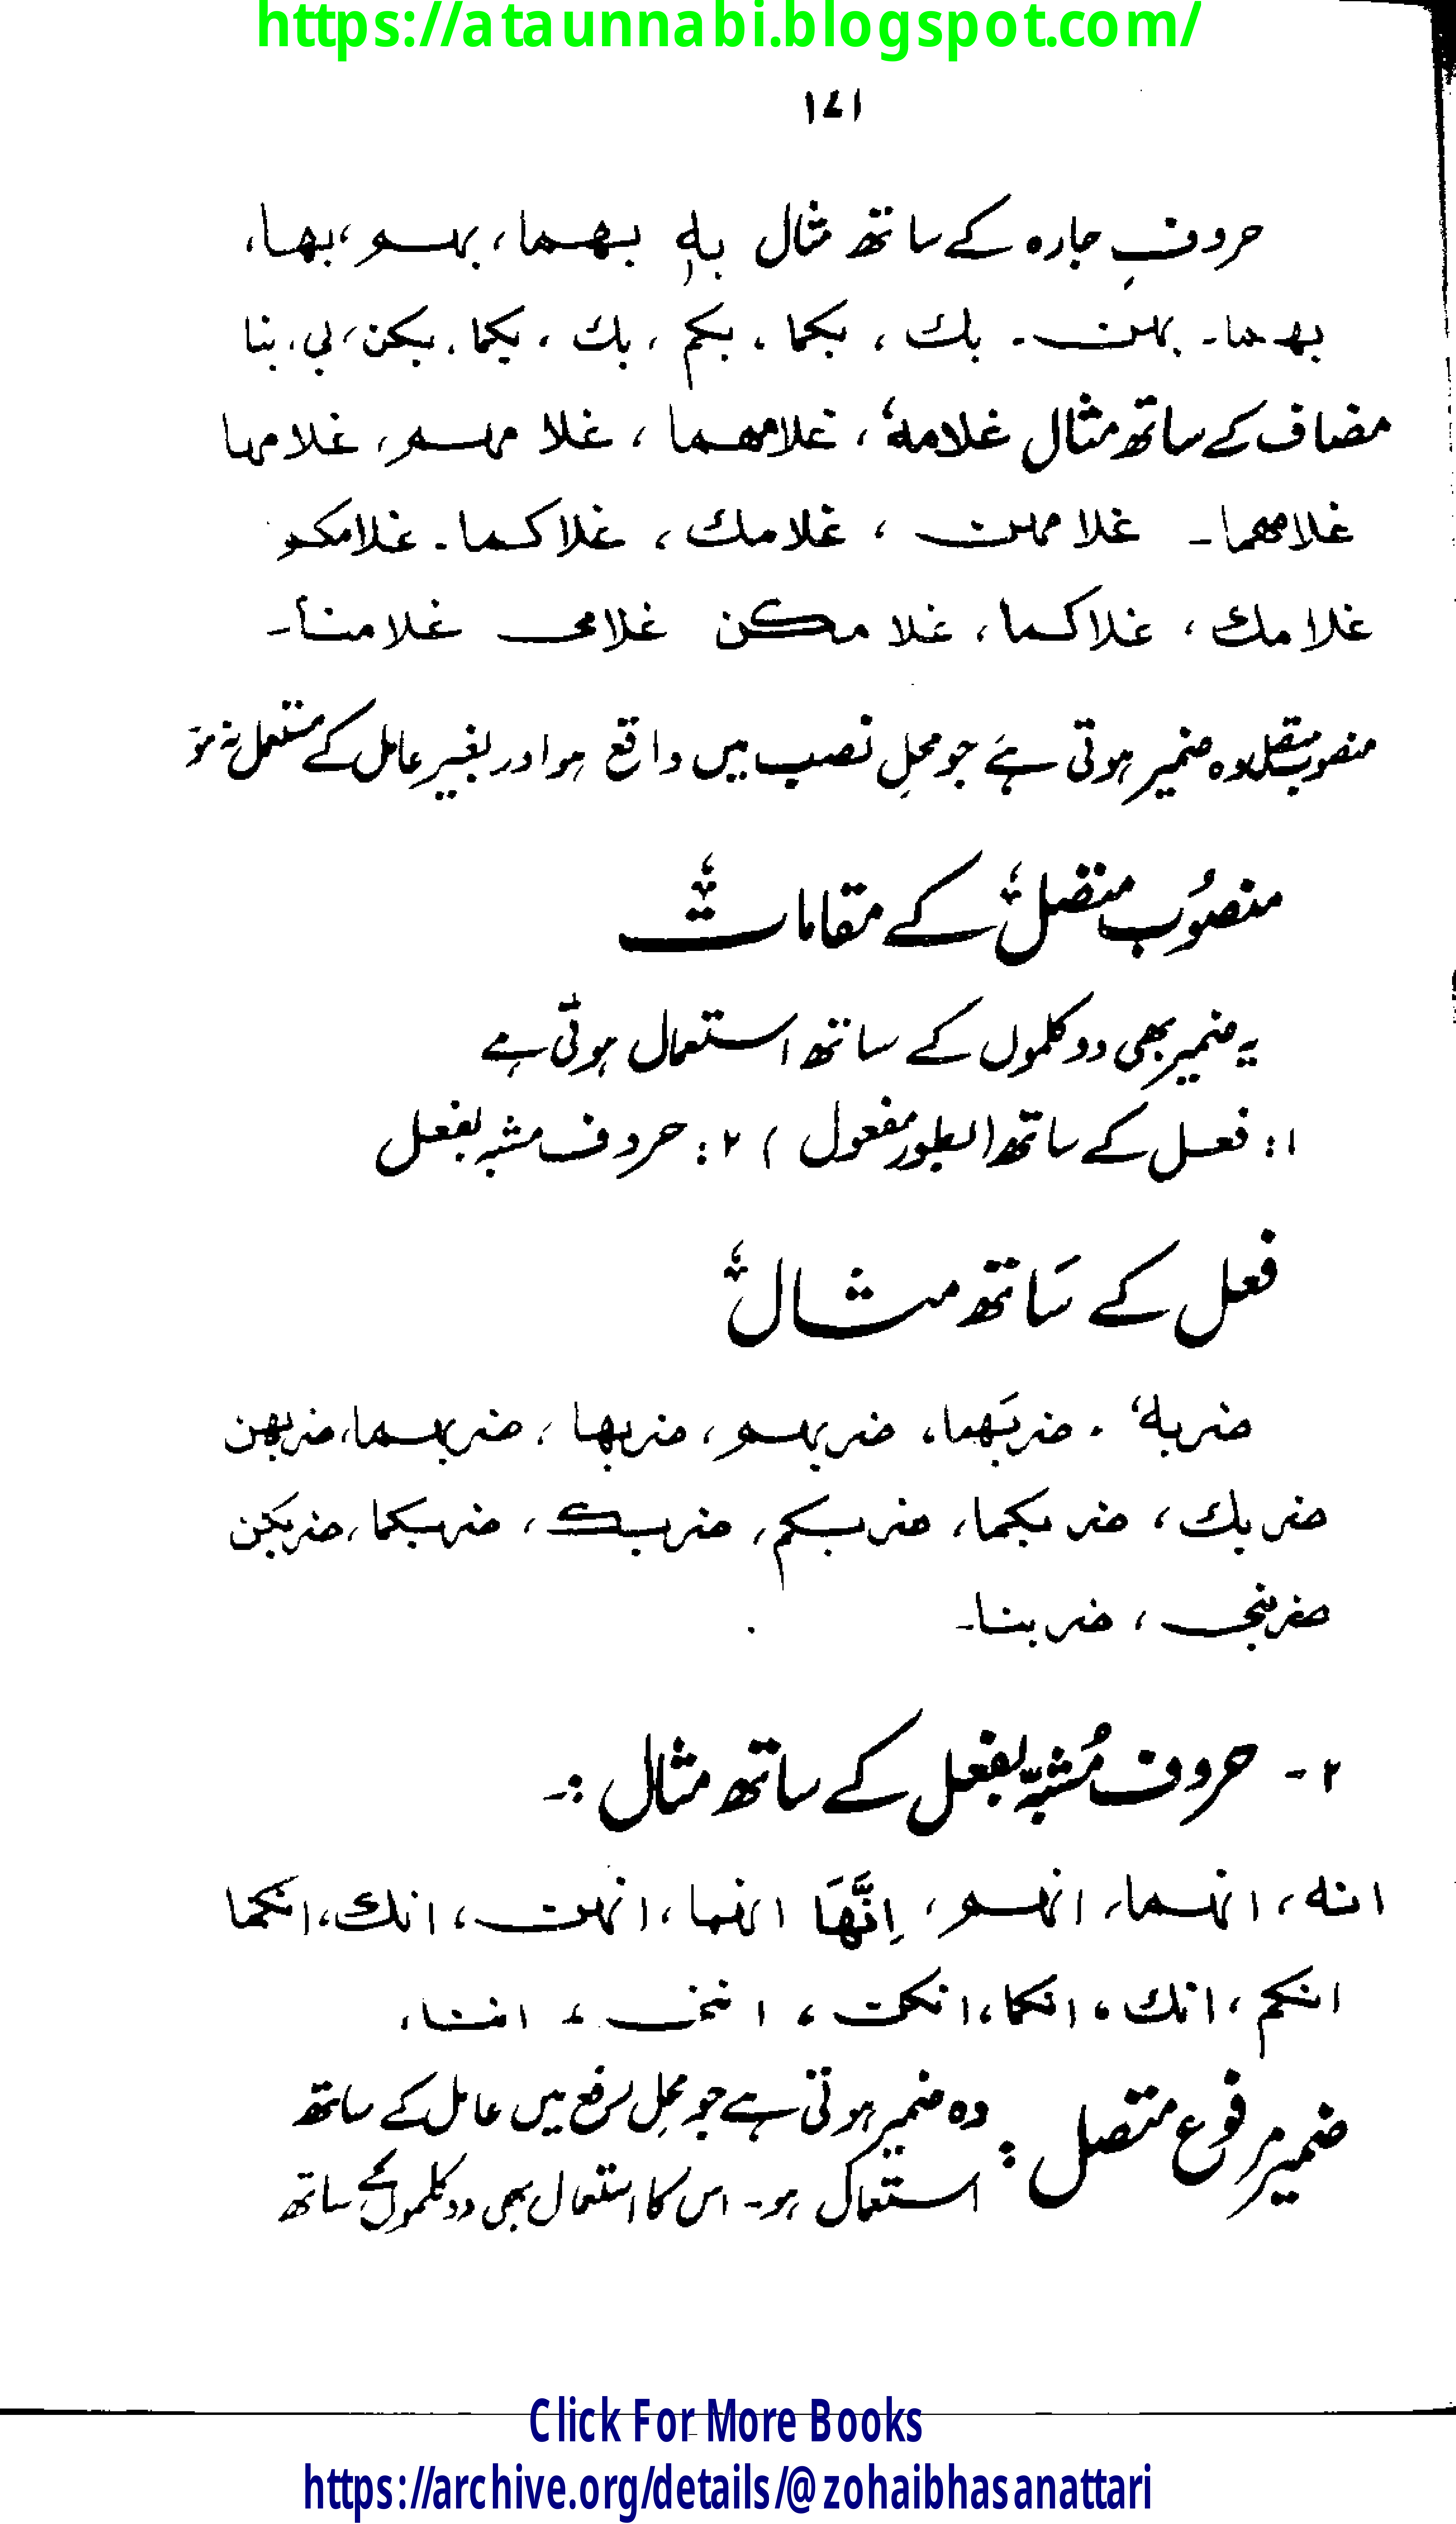 https://ataunnabi.blogspot.com/
۱۷۱
حروفِ جارہ کے ساتھ مثال بہٖ بھما، بہم، بھا،
بھما۔ بہن۔ بك، بکما، بکم، بك، بکما، بکن، بی، بنا
مضاف کے ساتھ مثال غلامہٗ، غلامھما، غلا مہم، غلامہا
غلامھما۔ غلا مہن، غلامك، غلاکما۔ غلامکم
غلا مك، غلاکما، غلا مکن غلامی غلامنا۔
منصوب متصل وہ ضمیر ہوتی ہے جو محلِ نصب میں واقع ہو اور بغیر عامل کے مستعمل نہ ہو
منصوُب متصل کے مقامات
یہ ضمیر بھی دو کلموں کے ساتھ استعمال ہوتی ہے
۱: فعل کے ساتھ (بطور مفعول) ۲: حروف مشبہ بفعل
فعل کے سَاتھ مثال
ضربہٗ، ضربَھما، ضربہم، ضربھا، ضربہما، ضربھن
ضربك، ضربکما، ضربکم، ضربك، ضربکما، ضربکن
ضربنی، ضربنا۔
۲۔ حروف مُشبہّ بفعل کے ساتھ مثال :۔
انہ، انہما، انہم، اِنَّھَا انہما، انہن، انك، انکما
انکم، انك، انکما، انکن، اننی، اننا،
ضمیر مرفوع متصل: وہ ضمیر ہوتی ہے جو محلِ رفع میں عامل کے ساتھ
استعمال ہو۔ اس کا استعمال بھی دو کلموں کے ساتھ
Click For More Books
https://archive.org/details/@zohaibhasanattari